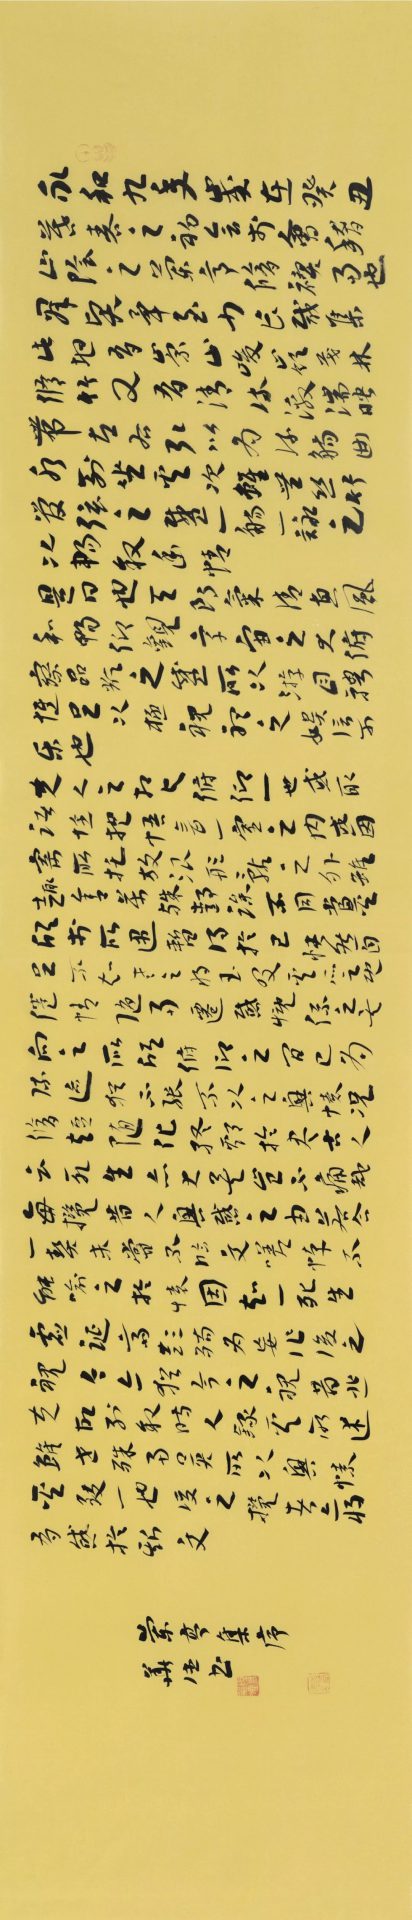 永和九年歲在癸丑
暮春之初會于會稽
山陰之蘭亭脩禊事也
群賢畢至少長咸集
此地有崇山峻嶺茂林
脩竹又有清流激湍映
帶左右引以為流觴曲
水列坐其次雖無絲竹
管弦之盛一觴一詠亦足
以暢敘幽情
是日也天朗氣清惠風
和暢仰觀宇宙之大俯
察品類之盛所以游目騁
懷足以極視聽之娛信可
樂也
夫人之相與俯仰一世或取
諸懷抱悟言一室之內或因
寄所託放浪形骸之外雖
趣舍萬殊靜躁不同當其
欣於所遇暫得於己快然自
足不知老之將至及其所之既
倦情隨事遷感慨係之矣
向之所欣俯仰之間已為
陳迹猶不能不以之興懷況
脩短隨化終期於盡古人
云死生亦大矣豈不痛哉
每攬昔人興感之由若合
一契未嘗不臨文嗟悼不
能喻之於懷固知一死生
為虛誕齊彭殤為妄作後之
視今亦猶今之視昔悲
夫故列敘時人錄其所述
雖世殊事異所以興懷
其致一也後之攬者亦將
有感於斯文
蘭亭集序